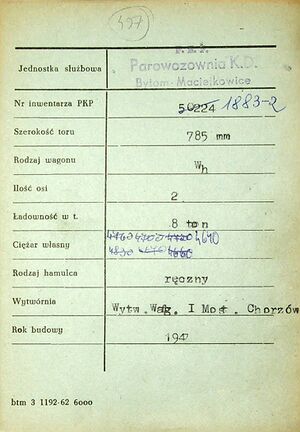 497
P.K.P.
Jednostka służbowa Parowozownia K.D.
Bytom-Maciejkowice
Nr inwentarza PKP 50224 1883-2
Szerokość toru 785 mm
Rodzaj wagonu Wh
Ilość osi 2
Ładowność w t. 8 ton
4760 4700 4720 4610
Ciężar własny
4890 4670 4660
Rodzaj hamulca ręczny
Wytwórnia Wytw. Wag. I Most. Chorzów
Rok budowy 194
btm 3 1192-62 6000